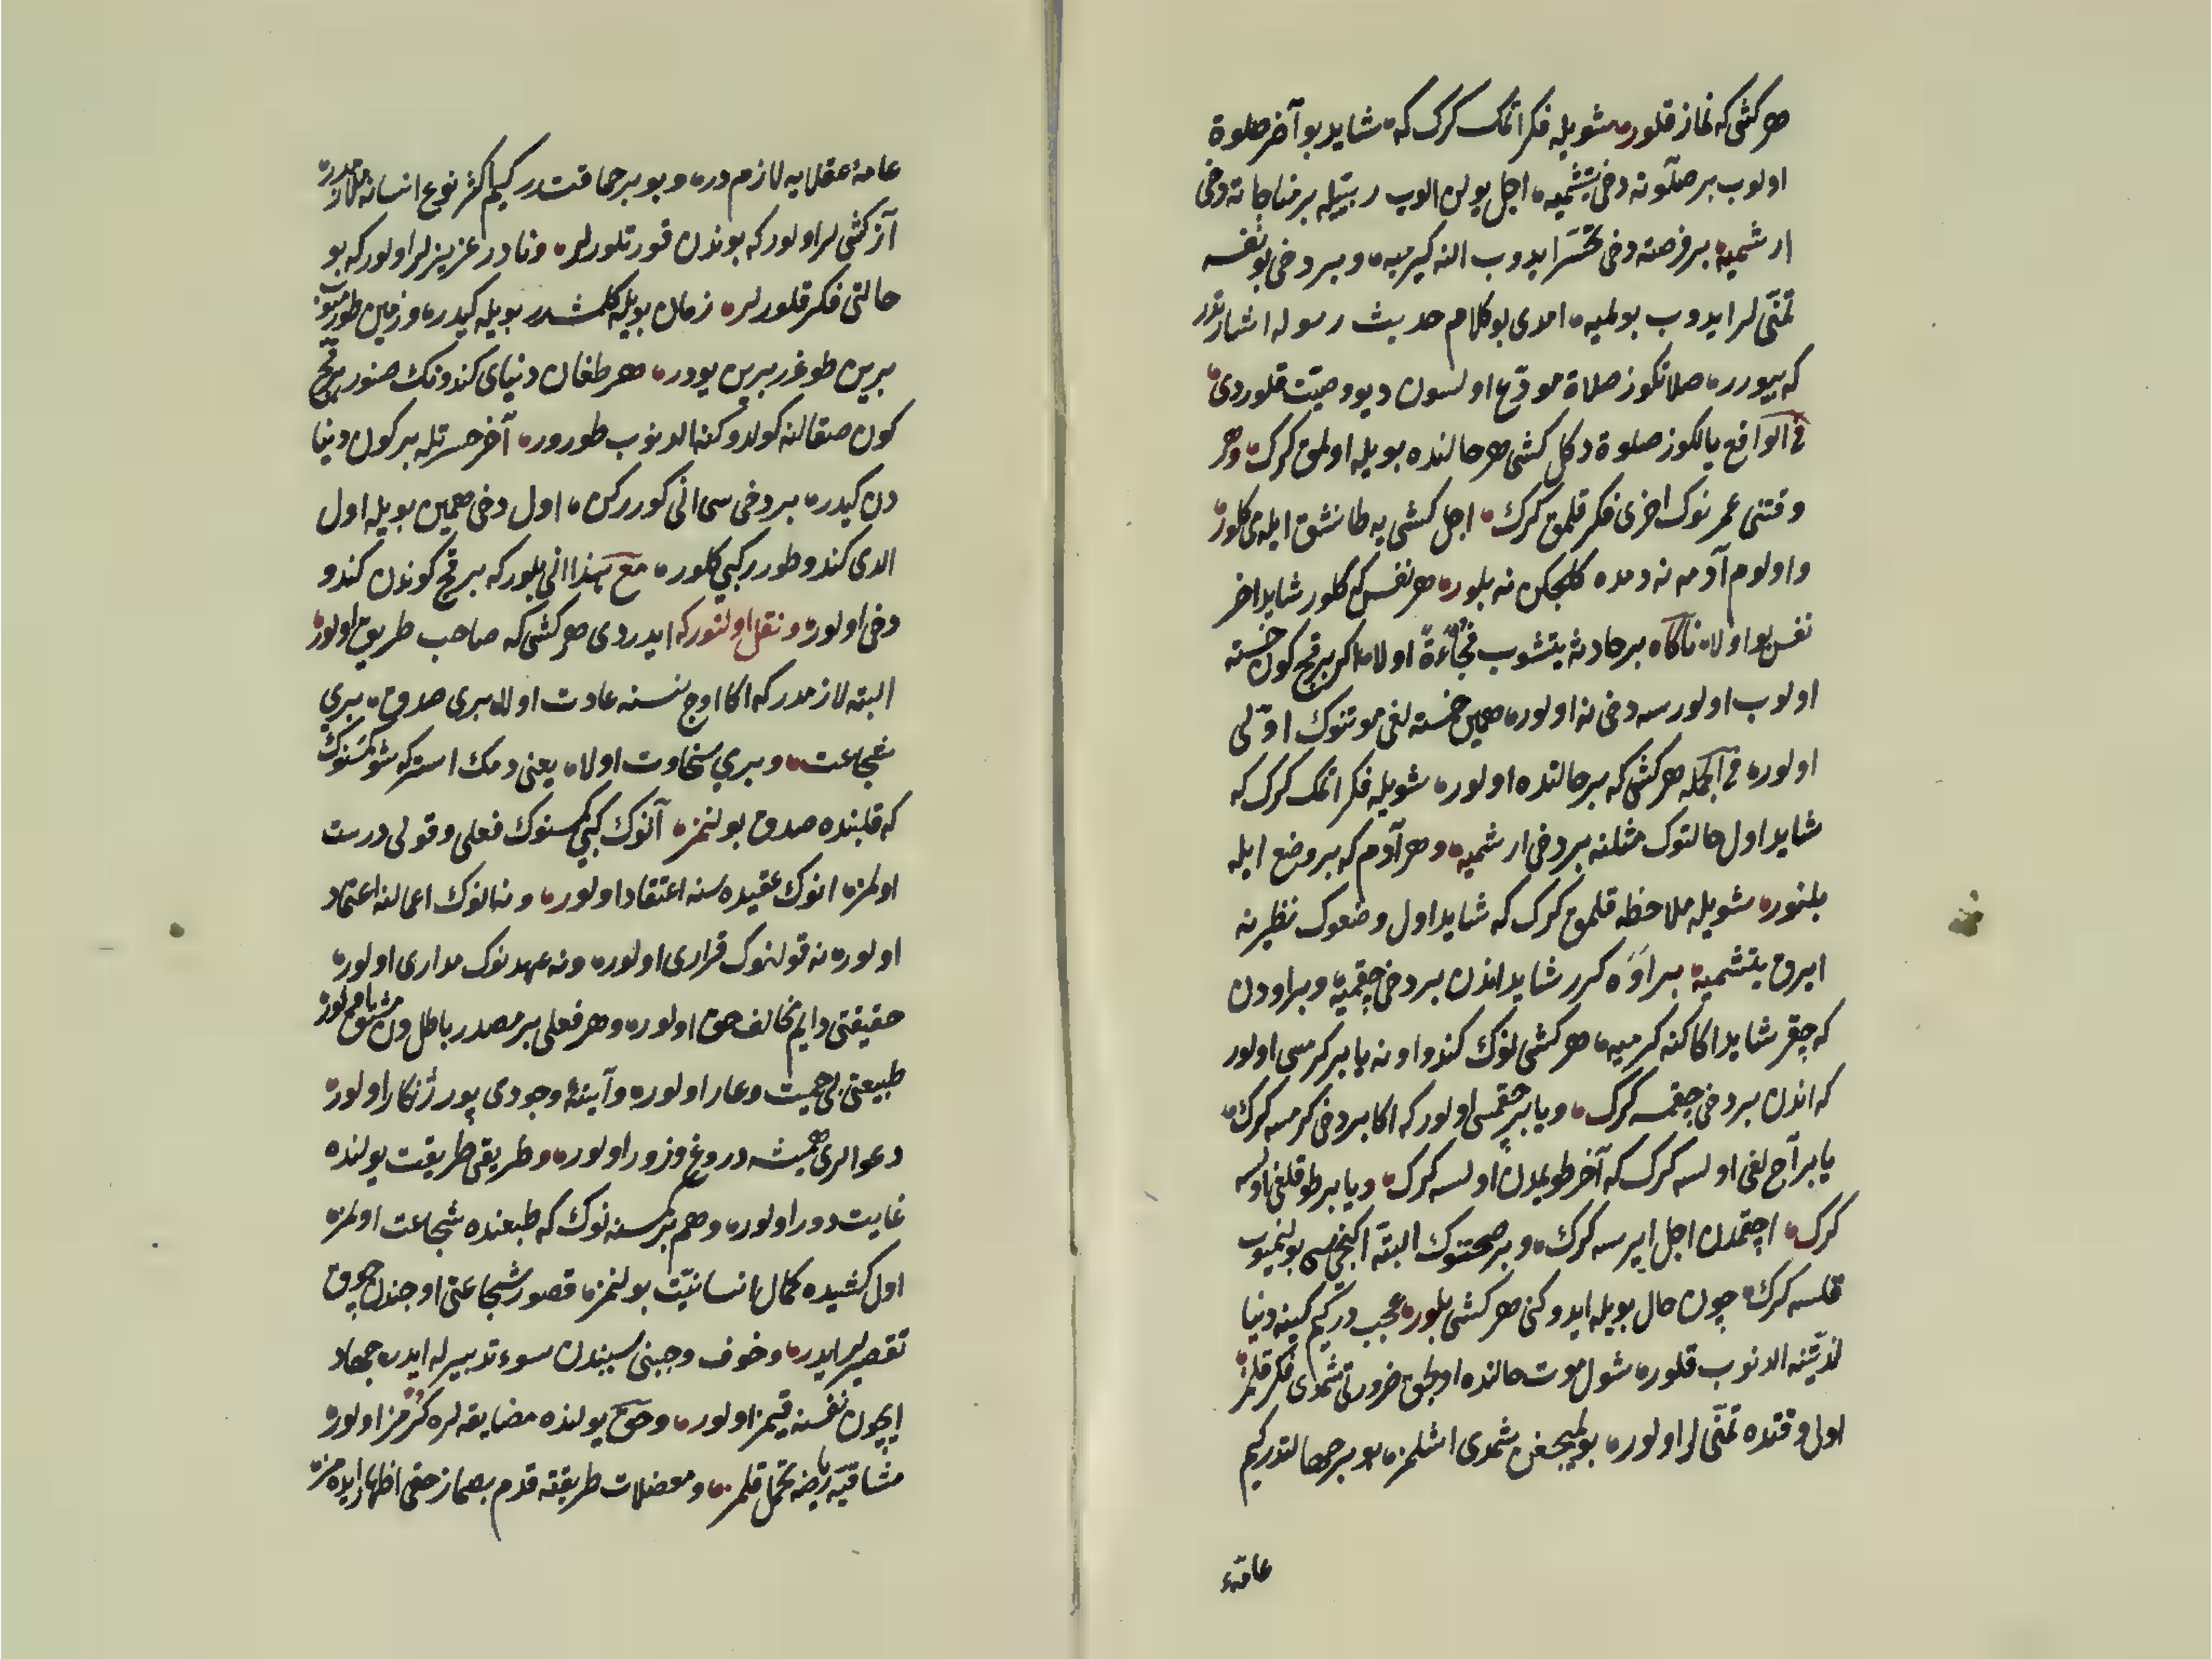 هر کشی که نماز قلور شویله فکر اتمک کرک که شاید بو آخر صلوة
اولوب بر صلوته دخی یتشمیه اجل یولن الوب ربیله بر مناجاته دخی
ارشمیه بر فرصته دخی تحسر ایدوب النه کیرمیه و بر دخی بو نفسه
تمنّی لر ایدوب بولمیه امدی بو کلام حدیث رسوله اشارتدر
که بیورر صلاتکوز صلاة مودّع اولسون دیو وصیّت قلوردی
فی الواقع یالکوز صلوة دکل کشی هر حالنده بویله اولمق کرک و هر
وقتنی عمرنوک اخری فکر قلمق کرک اجل کشی یه طانشق ایله می کلور
و اولوم آدمه نه دمده کلجکن نه بلور هر نفس که کلور شاید اخر
نفس بو اولا ناکاه بر حادثه یتشوب فجاءةً اولا اکر بر قچ کون خسته
اولوب اولورسه دخی نه اولور همین خسته لغی موتنوک اوّلی
اولور فی الجمله هر کشی که بر حالتده اولور شویله فکر اتمک کرک که
شاید اول حالتوک مثلنه بر دخی ارشمیه و هر آدم که بر وضع ایله
بلنور شویله ملاحظه قلمق کرک که شاید اول وضعوک نظیرنه
ایرق یتشمیه بر اوه کرر شاید اندن بر دخی چقمیه و بر اودن
که چقر شاید اکا کنه کرمیه هر کشی نوک کندو اونه یا بر کرمسی اولور
که اندن بر دخی چقمسه کرک و یا بر چقمسی اولور که اکا بر دخی کرمسه کرک
یا بر آج لغی اولسه کرک که آخر طویمدن اولسه کرک و یا بر طوقلغی اولسه
کرک اچقمدن اجل ایرسه کرک و بر صحتنوک البته ایکنجیسی بولنمیوب
قلسه کرک چون حال بویله ایدوکنی هر کشی بلور عجب در کیم کینه دنیا
لذّتنه الدنوب قلور شول موت حالنده اولجق ضرورتی شمدی فکر قلمز
اول وقتده تمنّی لر اولور بولمیجغن شمدی اشلمز بو بر جهالتدر کیم
عامّهٔ
عامهٔ عقلایه لازم در و بو بر حماقت در کیم اکثر نوع انسانه ملازمدر
آز کشی لر اولور که بوندن قورتلورلر و نادر عزیزلر اولور که بو
حالتی فکر قلورلر زمان بویله کلمشدر بویله کیدر و زمین طورمیوب
برین طوغرر برین یودر هر طغان دنیای کندونک صنور بر قچ
کون صقالنه کولدوکنه الدنوب طورور آخر حسرتله بر کون دنیا
دن کیدر بر دخی سی انی کوررکن اول دخی همین بویله اول
الدی کندو طورر کبی کلور مع هذا انی بلور که بر قچ کوندن کندو
دخی اولور و نقل اولنور که ایدردی هر کشی که صاحب طریق اولور
البته لازمدر که اکا اوچ نسنه عادت اولا بری صدق بری
شجاعت و بری سخاوت اولا یعنی دمک استر که شو کمسنوک
که قلبنده صدق بولنمز آنوک کبی کمسنوک فعلی و قولی درست
اولمز انوک عقیده سنه اعتقاد اولور و نه انوک اعمالنه اعتماد
اولور نه قولنوک قراری اولور و نه عهدنوک مداری اولور
حقیقتی دایم مخالف حق اولور و هر فعلی بر مصدر باطلدن مشتق اولور
طبیعتی بی حمیت و عار اولور و آینهٔ وجودی پر ژنکار اولور
دعوالری همیشه دروغ و زور اولور و طریقی طریقت یولنده
غایت دور اولور و هم بر کمسنه نوک که طبعنده شجاعت اولمز
اول کشیده کمال انسانیّت بولنمز قصور شجاعتی اوجندن چوق
تقصیرلر ایدر و خوف و جبنی سببندن سوء تدبیرلر ایدر جهاد
ایچون نفسنه قیمز اولور و حق یولنده مضایقه لره کرمز اولور
مشاقّ ریاضه تحمل قلمز و معضلات طریقته قدم بصماز حقی اظهار ایده مز